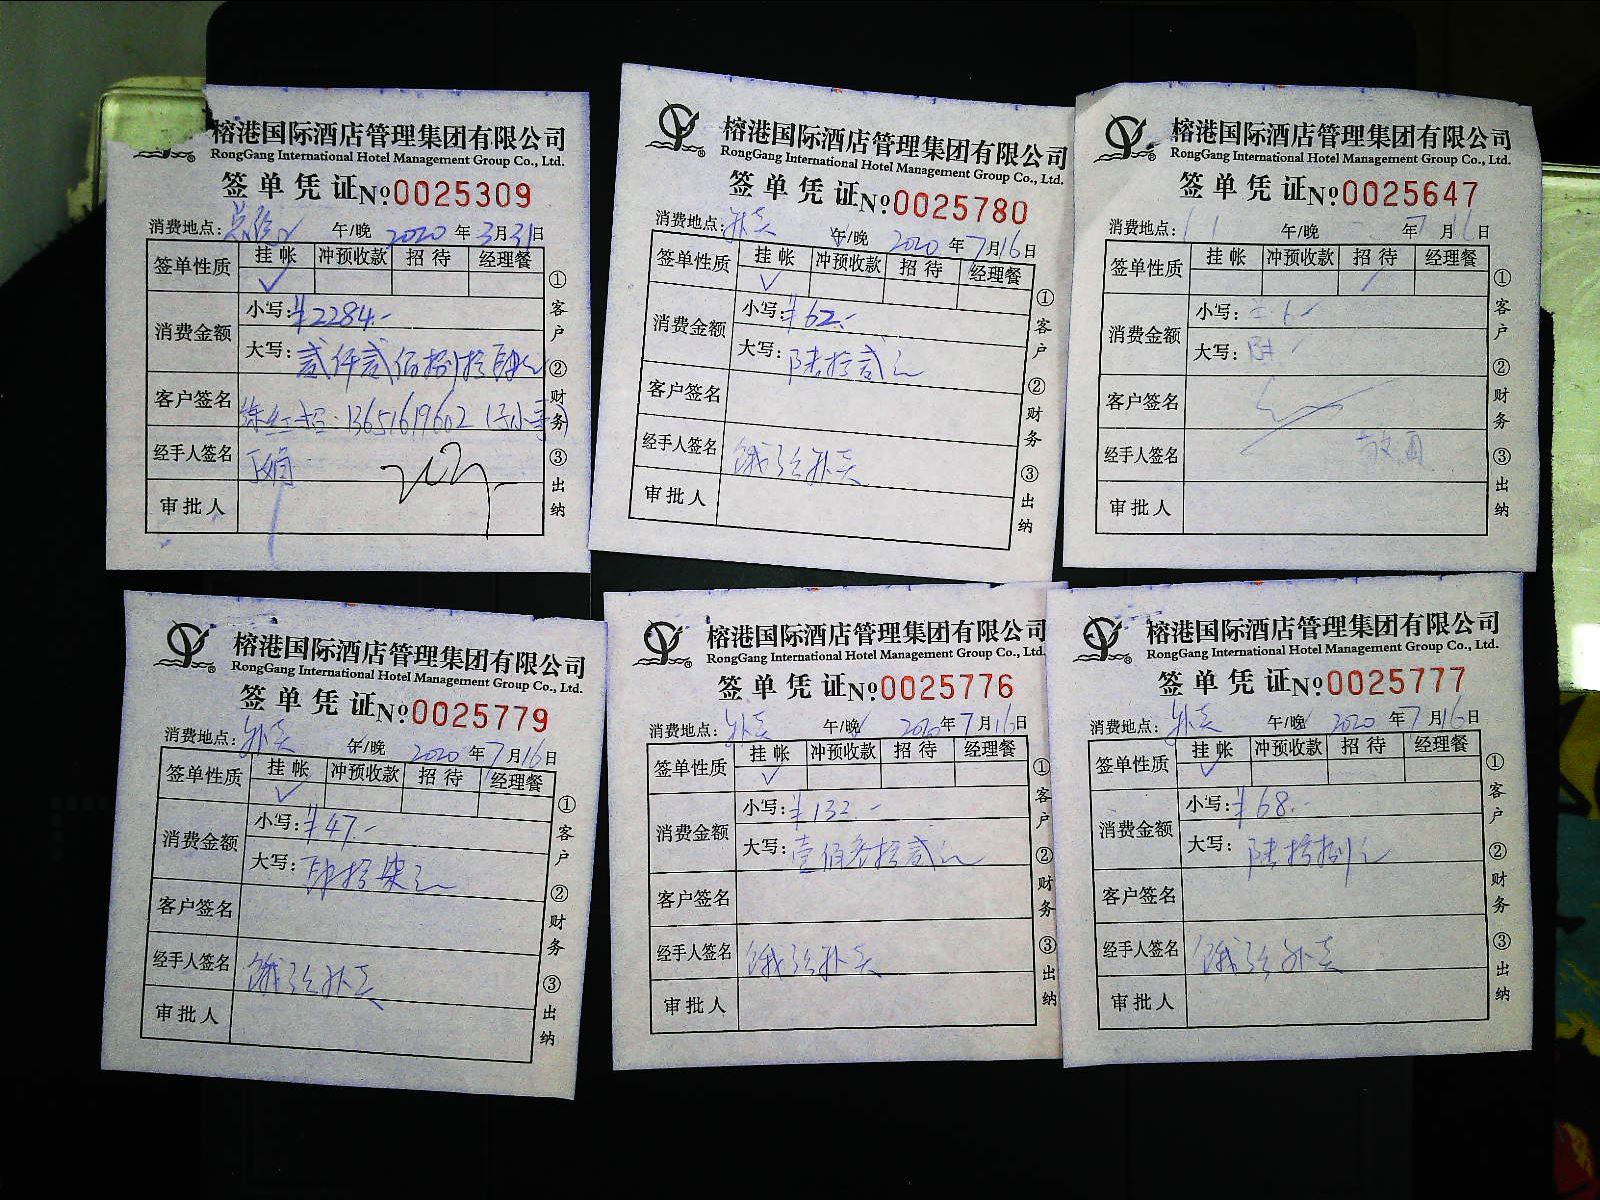 榕港国际酒店管理集团有限公司
RongGang International Hotel Management Group Co., Ltd.
签单凭证 No 0025309
消费地点: 午/晚 2020 年 3 月 31 日
签单性质 挂帐 冲预收款 招待 经理餐
✓
消费金额 小写: ¥2284.-
大写: 贰仟贰佰捌拾肆元
客户签名 13651619602
经手人签名
审批人
①客户 ②财务 ③出纳
榕港国际酒店管理集团有限公司
RongGang International Hotel Management Group Co., Ltd.
签单凭证 No 0025780
消费地点: 外卖 午/晚 2020 年 7 月 16 日
签单性质 挂帐 冲预收款 招待 经理餐
✓
消费金额 小写: ¥62.-
大写: 陆拾贰元
客户签名
经手人签名 外卖
审批人
①客户 ②财务 ③出纳
榕港国际酒店管理集团有限公司
RongGang International Hotel Management Group Co., Ltd.
签单凭证 No 0025647
消费地点: 午/晚 年 月 日
签单性质 挂帐 冲预收款 招待 经理餐
消费金额 小写:
大写:
客户签名
经手人签名
审批人
①客户 ②财务 ③出纳
榕港国际酒店管理集团有限公司
RongGang International Hotel Management Group Co., Ltd.
签单凭证 No 0025779
消费地点: 外卖 午/晚 2020 年 7 月 16 日
签单性质 挂帐 冲预收款 招待 经理餐
✓
消费金额 小写: ¥47.-
大写: 肆拾柒元
客户签名
经手人签名 外卖
审批人
①客户 ②财务 ③出纳
榕港国际酒店管理集团有限公司
RongGang International Hotel Management Group Co., Ltd.
签单凭证 No 0025776
消费地点: 外卖 午/晚 2020 年 7 月 16 日
签单性质 挂帐 冲预收款 招待 经理餐
✓
消费金额 小写: ¥132.-
大写: 壹佰叁拾贰元
客户签名
经手人签名 外卖
审批人
①客户 ②财务 ③出纳
榕港国际酒店管理集团有限公司
RongGang International Hotel Management Group Co., Ltd.
签单凭证 No 0025777
消费地点: 外卖 午/晚 2020 年 7 月 16 日
签单性质 挂帐 冲预收款 招待 经理餐
✓
消费金额 小写: ¥68.-
大写: 陆拾捌元
客户签名
经手人签名 外卖
审批人
①客户 ②财务 ③出纳